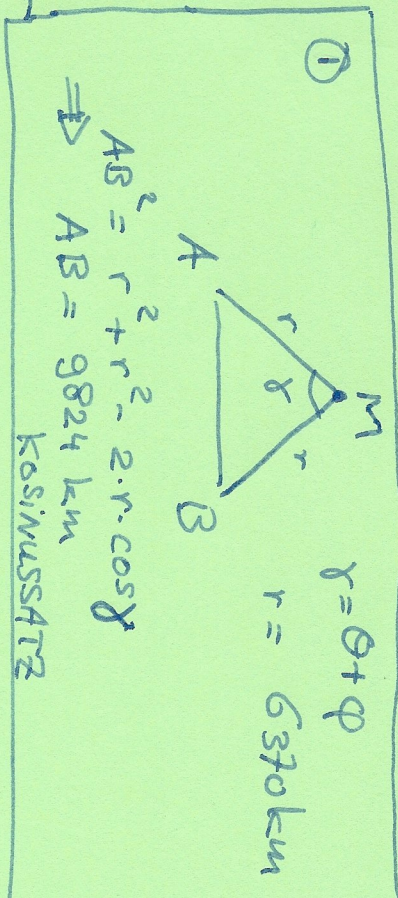 ①
M
γ = θ + φ
r
γ
r
r = 6370 km
A
B
AB² = r² + r² - 2·r·cosγ
⇒ AB = 9824 km
KOSINUSSATZ